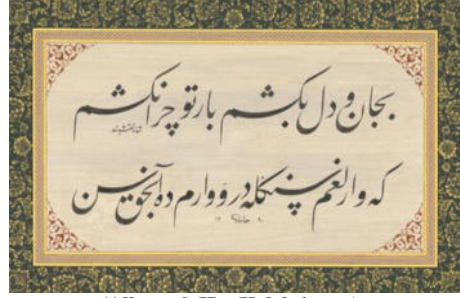 بجان و دل بکشم بار تو چرا نکشم
که وارلغم سنکله در و وارم ده آنجق سن